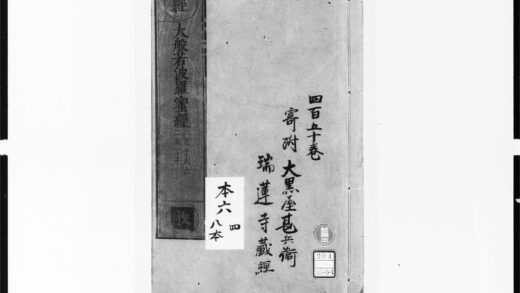 經
大般若波羅蜜經
四百五十巻
寄附 大黒屋甚兵衛
瑞蓮寺藏經
本六四
八本
204